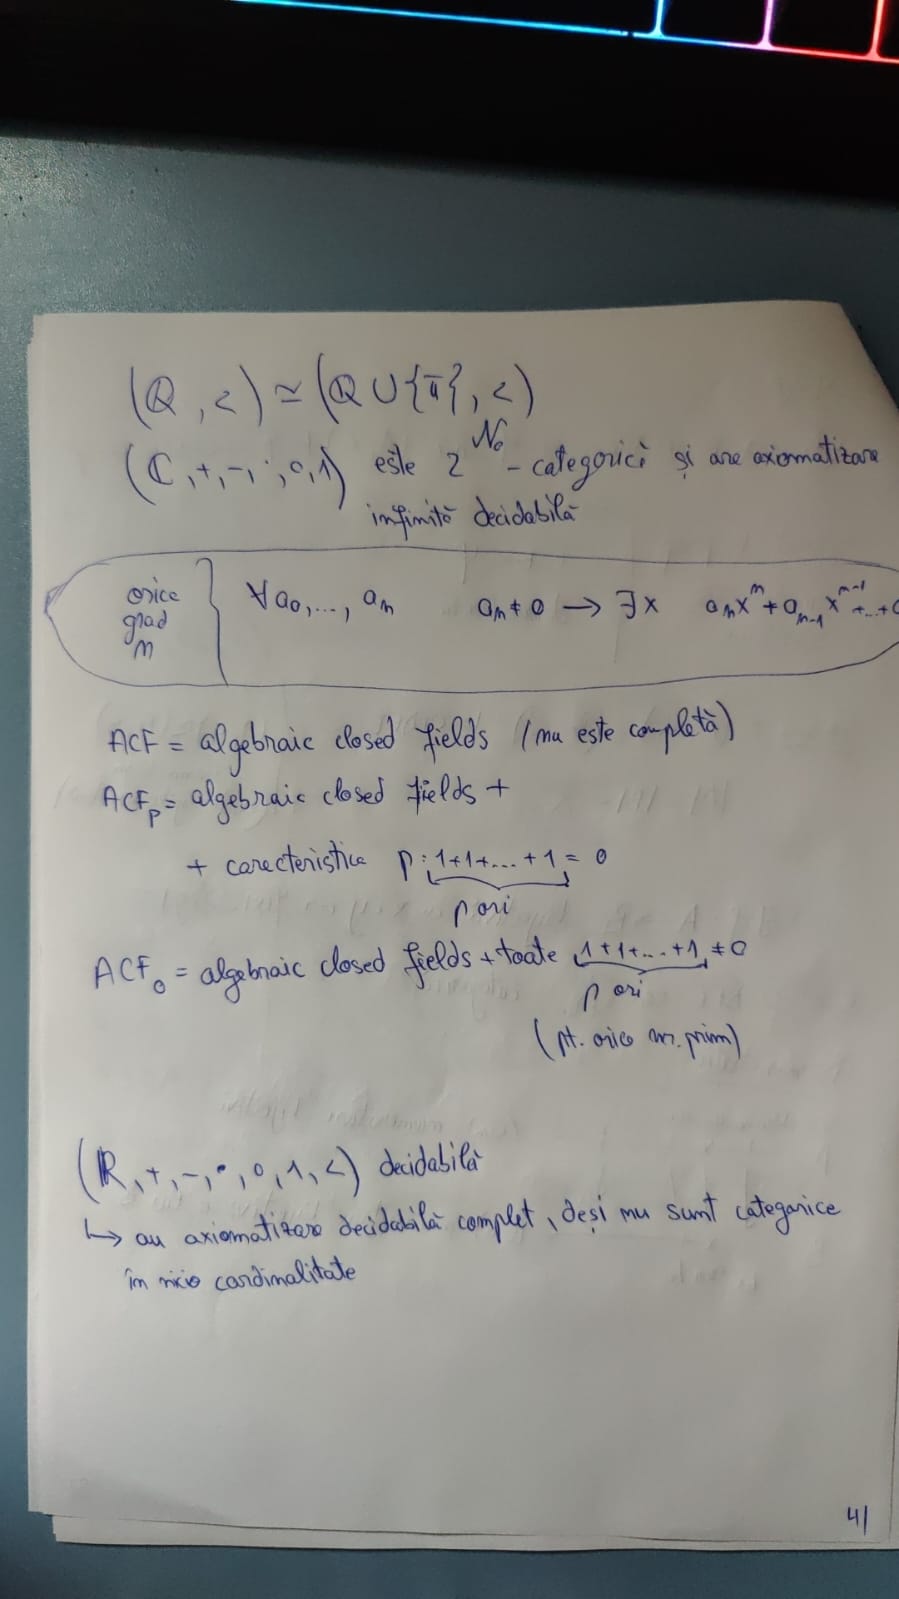 (ℚ, <) ≃ (ℚ ∪ {π}, <)
(ℂ, +, -, ·, 0, 1) este 2^ℵ₀ - categorică și are axiomatizare
infinită decidabilă
orice grad n { ∀ a₀, ..., aₙ aₙ ≠ 0 → ∃x aₙxⁿ + aₙ₋₁xⁿ⁻¹ + ... +
ACF = algebraic closed fields (nu este completă)
ACFₚ = algebraic closed fields +
+ carecteristica p : 1+1+...+1 = 0
p ori
ACF₀ = algebraic closed fields + toate 1+1+...+1 ≠ 0
p ori
(pt. orice nr. prim)
(ℝ, +, -, ·, 0, 1, <) decidabilă
↳ au axiomatizare decidabilă complet, deși nu sunt categorice
în nicio cardinalitate
41